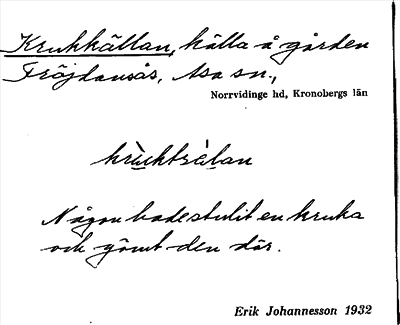 Krukkällan, källa å gården
Fröjdansås, Asa sn.,
Norrvidinge hd, Kronobergs län
krùktsèlan
Någon hade stulit en kruka
och gömt den där.
Erik Johannesson 1932